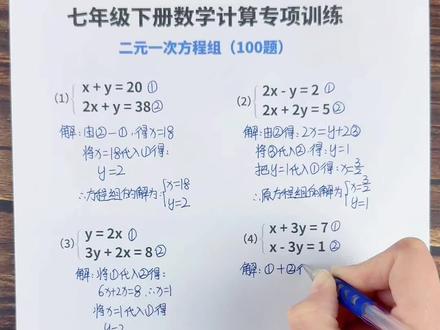 七年级下册数学计算专项训练
二元一次方程组（100题）
(1) { x + y = 20 ①
2x + y = 38 ②
解：由②－①，得x=18
将x=18代入①得：
y=2
∴方程组的解为{x=18
y=2
(2) { 2x - y = 2 ①
2x + 2y = 5 ②
解：由①得：2x=y+2③
将③代入②得：y=1
把y=1代入①得：x=3/2
∴原方程组的解为{x=3/2
y=1
(3) { y = 2x ①
3y + 2x = 8 ②
解：将①代入②得：
6x+2x=8 ∴x=1
将x=1代入①得
y=2
(4) { x + 3y = 7 ①
x - 3y = 1 ②
解：①+②